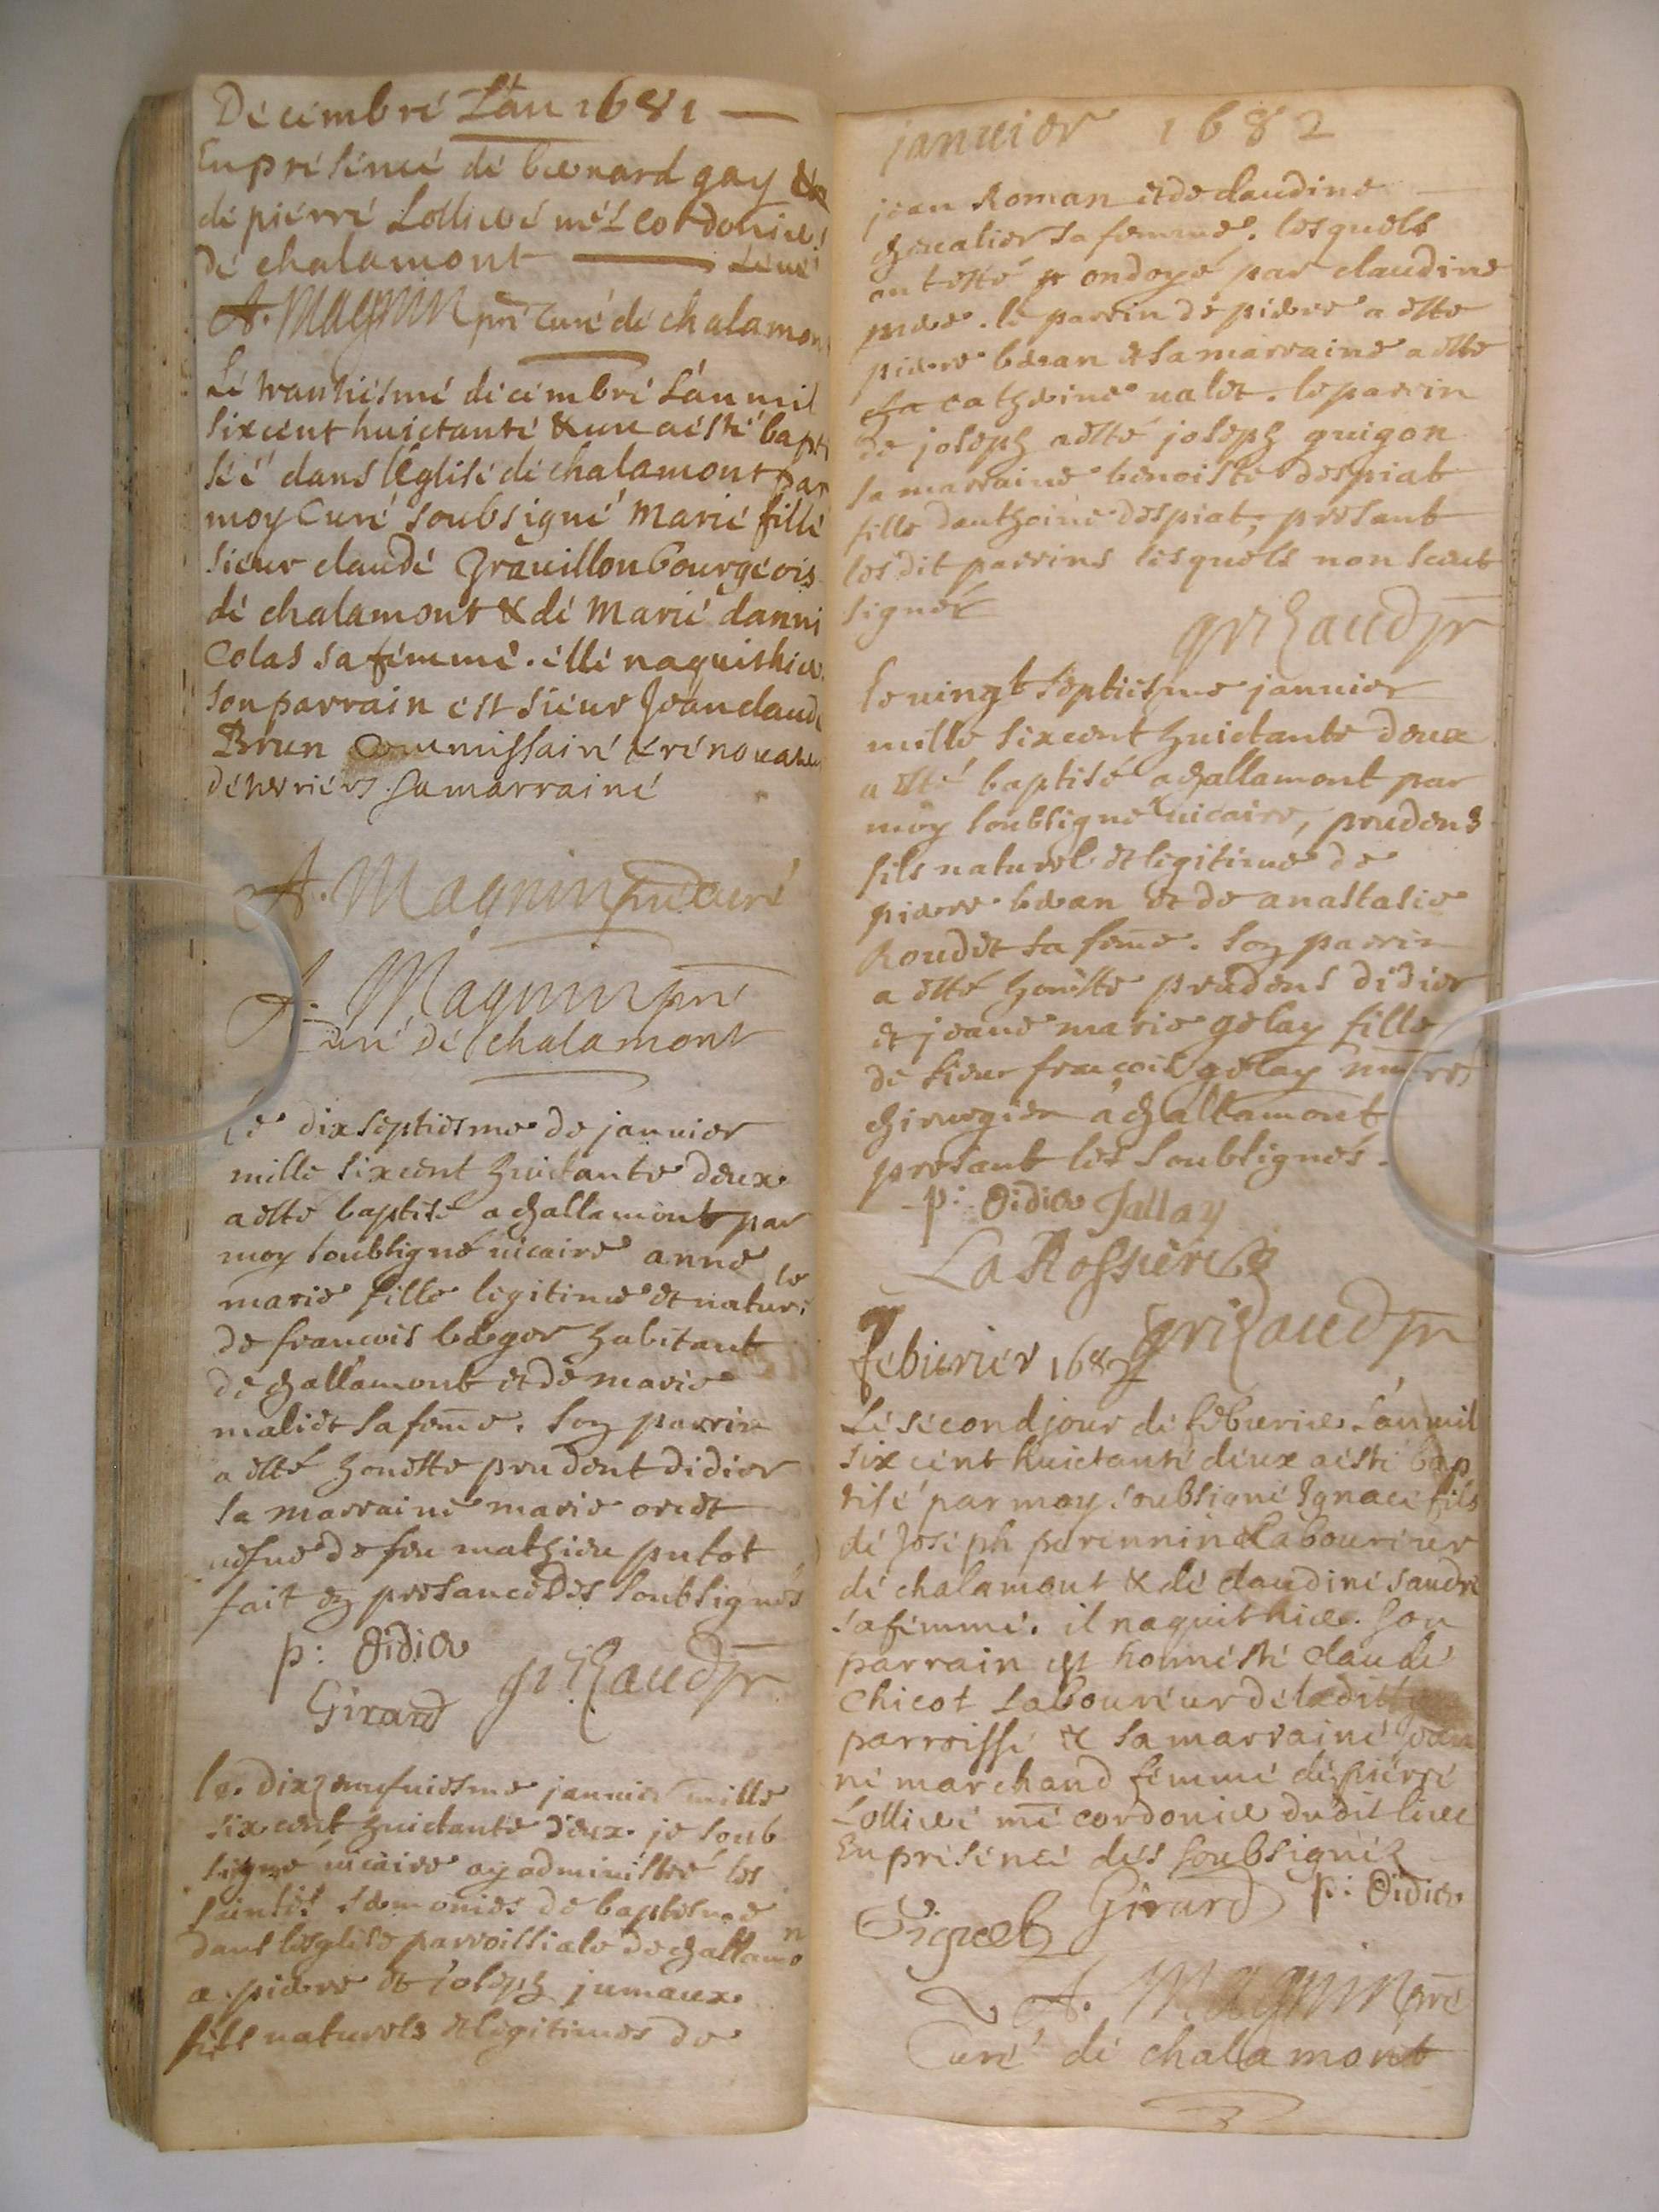 Décémbré L'an 1681 —
En présénce dé bernard gay &
dé piérré Lollieré mé Cordonier
Dé chalamont —
A. Magnin pré Curé dé chalamon
Lé trantiésmé décémbré L'an mil
six cent huictanté & un a ésté bapti
séé dans l'églisé dé chalamont par
moy Curé soubsigné Marié fillé
siéur claudé Gravillon bourgéois
dé chalamont & dé Marié danni
Colas sa fémmé. éllé naquit hier
son parrain est siéur Jean claudé
Brun Commissairé & rénovateur
dé terriérs. sa marrainé
A. Magnin pré curé
A. Magnin pré
Curé Dé Chalamont
Le dixseptiesme de januier
mille six cent huictante deux
a esté baptisé a challamont par
moy soubsigné uicaire anne
marie fille legitime et naturele
de francois berger habitant
de challamont et de marie
maliet sa feme. son parrin
a esté honeste prudent didier
la marraine marie oriet
uefue de feu mathieu putot
fait en presance Des soubsignés
p: Didier
Girard
le dixzeneufuiesme januier mille
six cent huictante deux je soub
signé uicaire ay administré les
saintes seremonies de baptesme
dans lesglise parroissiale de challamon
a pierre et Joseph jumaux
fils naturels et legitimes de
januier 1682
jean Roman et de claudine
cheualier sa femme. lesquels
ont esté ondoyé par claudine
. le parrin de pierre a esté
pierre beran et sa marraine a esté
catherine ualet. le parrin
de joseph a esté joseph guigon
sa marraine benoiste despiat
fille danthoine despiat, presant
les dit parrins lesquels non sceut
signer
Le uingt septiesme januier
mille six cent huictante deux
a esté baptisé a challamont par
moy soubsigné uicaire, prudens
fils naturel et legitime de
pierre beran et de anastasie
Roudet sa feme. son parrin
a esté honeste prudens didier
et jeane marie gelay fille
de sieur francois gelay
chirurgien a challamont
presant les soubsignés.
p: Didier Jallay
La Rossiere
féburiér 1682
Lé sécond jour dé fébvrier L'an mil
six cént huictanté déux a ésté bap
tisé par moy soubsigné Ignacé fils
dé Joséph pérennin Labouréur
dé chalamont & dé claudiné
sa fémmé. il naquit hier. son
parrain est honnésté claudé
Chicot Labouréur dé laditte
parroissé & sa marrainé Jéan
né marchand fémmé dé piérré
Lollieré mé cordonier dudit lieu
En préséncé des soubsignéz
Girard p: Didier
A. Magnin pré
Curé dé chalamont